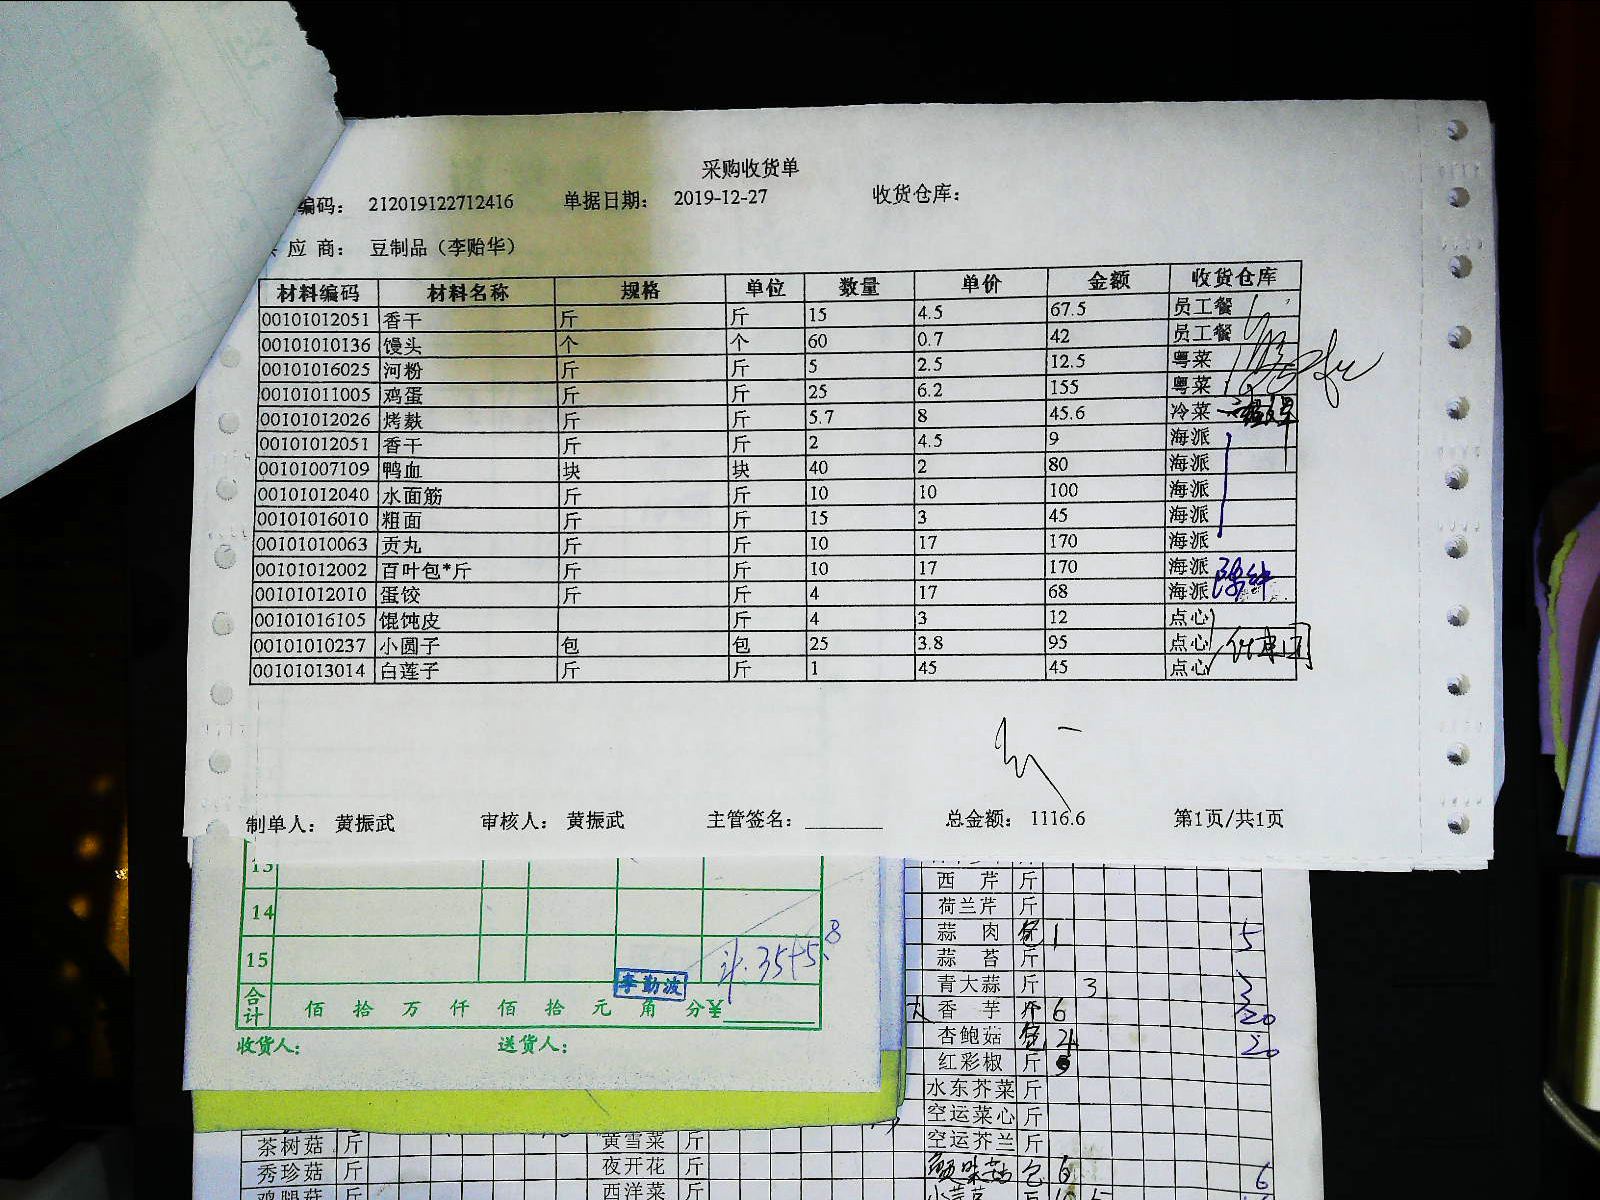 采购收货单
编码： 212019122712416 单据日期： 2019-12-27 收货仓库：
应 商： 豆制品（李贻华）
材料编码 材料名称 规格 单位 数量 单价 金额 收货仓库
00101012051 香干 斤 斤 15 4.5 67.5 员工餐
00101010136 馒头 个 个 60 0.7 42 员工餐
00101016025 河粉 斤 斤 5 2.5 12.5 粤菜
00101011005 鸡蛋 斤 斤 25 6.2 155 粤菜
00101012026 烤麸 斤 斤 5.7 8 45.6 冷菜
00101012051 香干 斤 斤 2 4.5 9 海派
00101007109 鸭血 块 块 40 2 80 海派
00101012040 水面筋 斤 斤 10 10 100 海派
00101016010 粗面 斤 斤 15 3 45 海派
00101010063 贡丸 斤 斤 10 17 170 海派
00101012002 百叶包*斤 斤 斤 10 17 170 海派
00101012010 蛋饺 斤 斤 4 17 68 海派
00101016105 馄饨皮 斤 4 3 12 点心
00101010237 小圆子 包 包 25 3.8 95 点心
00101013014 白莲子 斤 斤 1 45 45 点心
制单人： 黄振武 审核人： 黄振武 主管签名： 总金额： 1116.6 第1页/共1页
13
14
15
李勤波
合计 佰 拾 万 仟 佰 拾 元 角 分¥
收货人： 送货人：
西 芹 斤
荷兰芹 斤
蒜 肉 1 5
蒜 苔 斤
青大蒜 斤 3 3
香 芋 6 20
杏鲍菇 4 20
红彩椒 斤
水东芥菜 斤
空运菜心 斤
空运芥兰 斤
包 6 6
茶树菇 斤 黄雪菜 斤
秀珍菇 斤 夜开花 斤
鸡腿菇 斤 西洋菜 斤